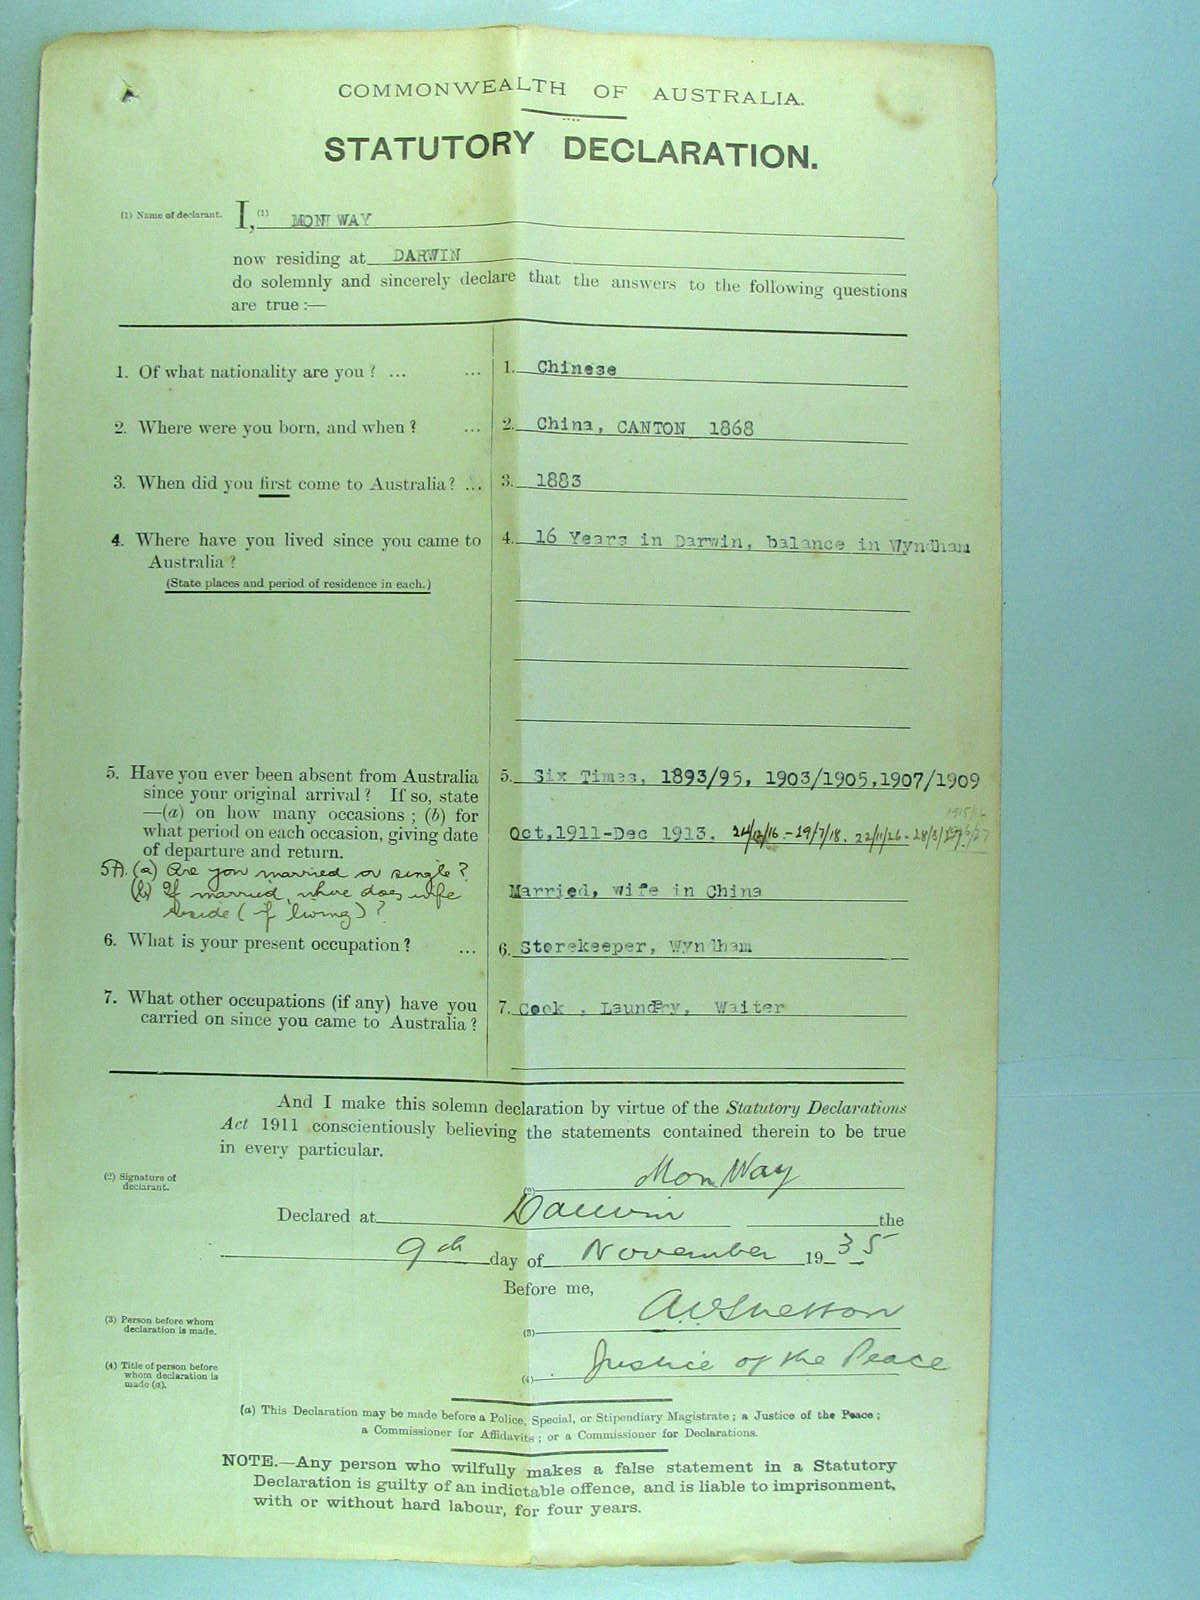 COMMONWEALTH OF AUSTRALIA.
STATUTORY DECLARATION.
(1) Name of declarant. I,(1) MON WAY
now residing at DARWIN
do solemnly and sincerely declare that the answers to the following questions
are true :—
1. Of what nationality are you ? ... ... 1. Chinese
2. Where were you born, and when ? ... 2. China, CANTON 1868
3. When did you first come to Australia ? ... 3. 1883
4. Where have you lived since you came to 4. 16 Years in Darwin, balance in Wyndham
Australia ?
(State places and period of residence in each.)
5. Have you ever been absent from Australia 5. Six Times, 1893/95, 1903/1905,1907/1909
since your original arrival ? If so, state
—(a) on how many occasions ; (b) for
what period on each occasion, giving date Oct,1911-Dec 1913. 24/12/16.-29/7/18. 22/11/26-
of departure and return.
5A. (a) Are you married or single ?
(b) If married, where does wife Married, wife in China
reside (if living) ?
6. What is your present occupation ? ... 6. Storekeeper, Wyndham
7. What other occupations (if any) have you 7. Cook , Laundry, Waiter
carried on since you came to Australia ?
And I make this solemn declaration by virtue of the Statutory Declarations
Act 1911 conscientiously believing the statements contained therein to be true
in every particular.
(2) Signature of
declarant.
(2) Mon Way
Declared at Darwin the
9th day of November 1935
Before me,
(3) Person before whom
declaration is made.
(3)
(4) Title of person before
whom declaration is
made (a).
(4) Justice of the Peace
(a) This Declaration may be made before a Police, Special, or Stipendiary Magistrate ; a Justice of the Peace ;
a Commissioner for Affidavits ; or a Commissioner for Declarations.
NOTE.—Any person who wilfully makes a false statement in a Statutory
Declaration is guilty of an indictable offence, and is liable to imprisonment,
with or without hard labour, for four years.